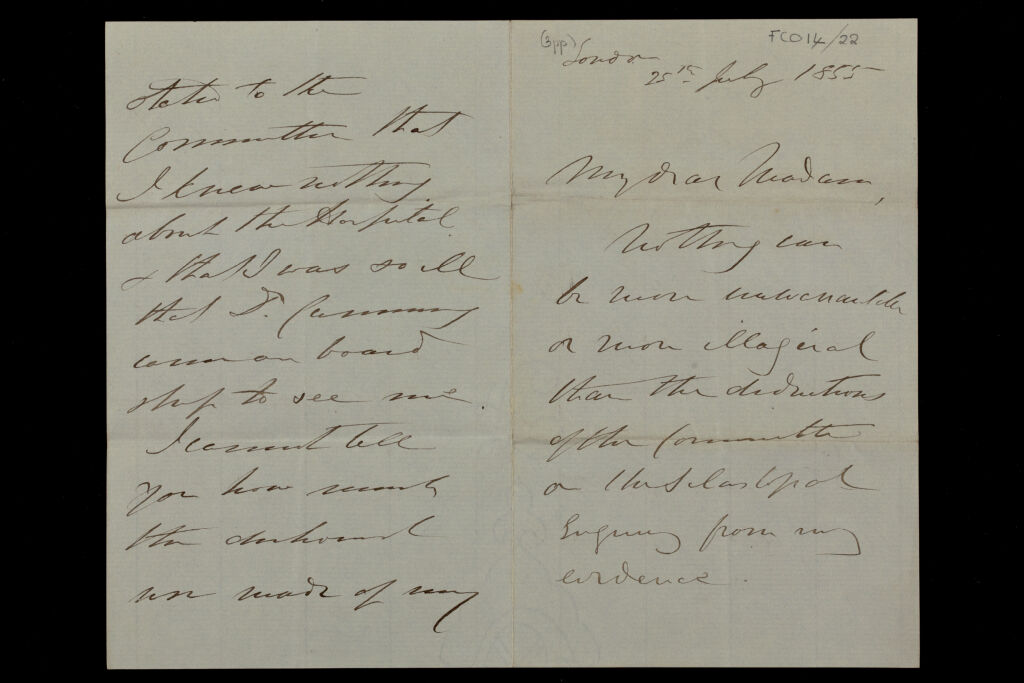 (3pp)
FCO14/22
London
25th July 1855
My dear Madam,
Nothing can
be more
or more illogical
than the deductions
of the Committee
on the Sebastopol
Enquiry from my
evidence.
stated to the
Committee that
I knew nothing
about the Hospital
& that I was so ill
that Dr. Cumming
came on board
ship to see me.
I cannot tell
you how much
the dishonest
use made of my